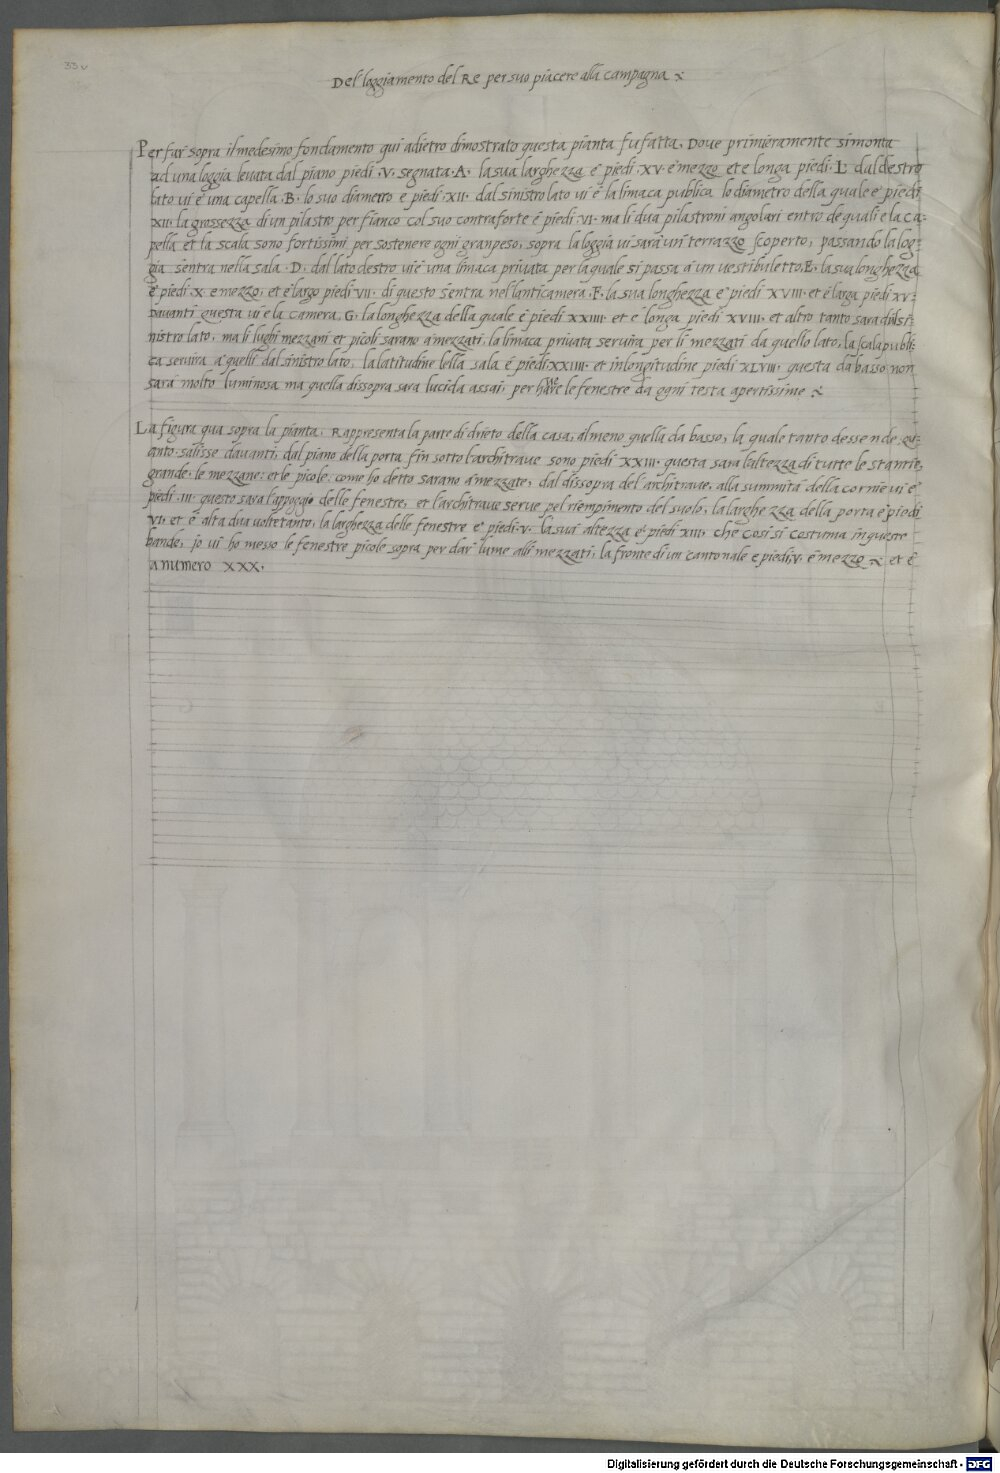 33 v
Del loggiamento del Re per suo piacere alla campagna
Per far sopra il medesimo fondamento qui adietro dimostrato questa pianta fu fatta. Dove primieramente si monta
ad una loggia levata dal piano piedi .V. segnata .A. la sua larghezza è piedi .XV. e mezzo et è longa piedi .L. dal destro
lato vi è una capella .B. lo suo diametro è piedi .XII. dal sinistro lato vi è la limaca publica lo diametro della quale è piedi
XII. la grossezza di un pilastro per fianco col suo contraforte è piedi .VI. ma li dua pilastroni angolari entro de quali è la ca-
pella et la scala sono fortissimi per sostenere ogni gran peso, sopra la loggia vi sarà un terrazzo scoperto, passando la log-
gia s'entra nella sala .D. dal lato destro vi è una limaca privata per la quale si passa a un vestibuletto .E. la sua longhezza
è piedi .X. e mezzo, et è largo piedi VII. di questo s'entra nel'anticamera .F. la sua longhezza è piedi XVIII. et è larga piedi XV.
davanti questa vi è la camera .G. la longhezza della quale è piedi XXIIII. et è longa piedi XVIII. et altro tanto sarà dal si-
nistro lato, ma li luoghi mezzani et picoli sarano amezzati, la limaca privata servirà per li mezzati da quello lato, la scala publi-
ca servirà a quelli dal sinistro lato, la latitudine della sala è piedi XXIIII. et in longitudine piedi XLVIII. questa da basso non
sarà molto luminosa ma quella dissopra sarà lucida assai, per have le fenestre da ogni testa apertissime
La figura qua sopra la pianta, Rappresenta la parte di drieto della casa, almeno quella da basso, la quale tanto dessende qu-
anto salisse davanti, dal piano della porta fin sotto l'architrave sono piedi XXIII. questa sarà l'altezza di tutte le stantie,
grande, le mezzane: et le picole: come ho detto sarano amezzate, dal dissopra del architrave, alla summità della cornice vi è
piedi .III. questo sarà l'appoggio delle fenestre, et l'architrave serve pel riempimento del suolo, la larghezza della porta è piedi
VI. et è alta dua volte tanto, la larghezza delle fenestre è piedi .V. la sua altezza è piedi XIII, che così si costuma in queste
bande, jo vi ho messo le fenestre picole sopra per dar lume alli mezzati, la fronte di un cantonale è piedi .V. e mezzo et è
a numero XXX.
Digitalisierung gefördert durch die Deutsche Forschungsgemeinschaft - DFG